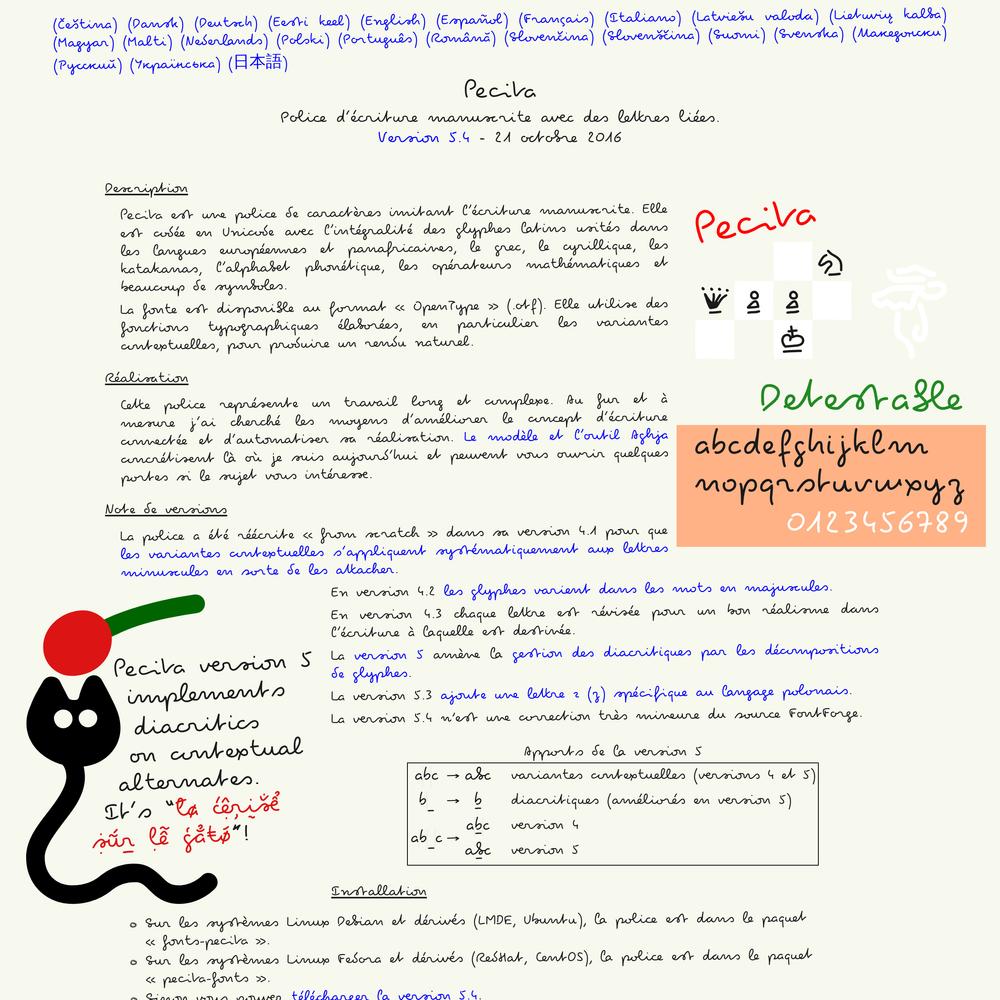 (Čeština) (Dansk) (Deutsch) (Eesti keel) (English) (Español) (Français) (Italiano) (Latviešu valoda) (Lietuvių kalba)
(Magyar) (Malti) (Nederlands) (Polski) (Português) (Română) (Slovenčina) (Slovenščina) (Suomi) (Svenska) (Македонски)
(Русский) (Українська) (日本語)
Pecita
Police d'écriture manuscrite avec des lettres liées.
Version 5.4 - 21 octobre 2016
Description
Pecita est une police de caractères imitant l'écriture manuscrite. Elle
est codée en Unicode avec l'intégralité des glyphes latins usités dans
les langues européennes et panafricaines, le grec, le cyrillique, les
katakanas, l'alphabet phonétique, les opérateurs mathématiques et
beaucoup de symboles.
La fonte est disponible au format « OpenType » (.otf). Elle utilise des
fonctions typographiques élaborées, en particulier les variantes
contextuelles, pour produire un rendu naturel.
Pecita
♘
♛ ♙ ♙
♔
Réalisation
Cette police représente un travail long et complexe. Au fur et à
mesure j'ai cherché les moyens d'améliorer le concept d'écriture
connectée et d'automatiser sa réalisation. Le modèle et l'outil Aghja
concrétisent là où je suis aujourd'hui et peuvent vous ouvrir quelques
portes si le sujet vous intéresse.
Detestable
abcdefghijklm
nopqrstuvwxyz
0123456789
Note de versions
La police a été réécrite « from scratch » dans sa version 4.1 pour que
les variantes contextuelles s'appliquent systématiquement aux lettres
minuscules en sorte de les attacher.
En version 4.2 les glyphes varient dans les mots en majuscules.
En version 4.3 chaque lettre est révisée pour un bon réalisme dans
l'écriture à laquelle est destinée.
La version 5 amène la gestion des diacritiques par les décompositions
de glyphes.
La version 5.3 ajoute une lettre z (ʒ) spécifique au langage polonais.
La version 5.4 n'est une correction très mineure du source FontForge.
Pecita version 5
implements
diacritics
on contextual
alternates.
It's "
"!
Apports de la version 5
abc → abc variantes contextuelles (versions 4 et 5)
b_ → b̲ diacritiques (améliorés en version 5)
ab_c → ab̲c version 4
ab̲c version 5
Installation
o Sur les systèmes Linux Debian et dérivés (LMDE, Ubuntu), la police est dans le paquet
« fonts-pecita ».
o Sur les systèmes Linux Fedora et dérivés (RedHat, CentOS), la police est dans le paquet
« pecita-fonts ».
o Sinon vous pouvez télécharger la version 5.4.